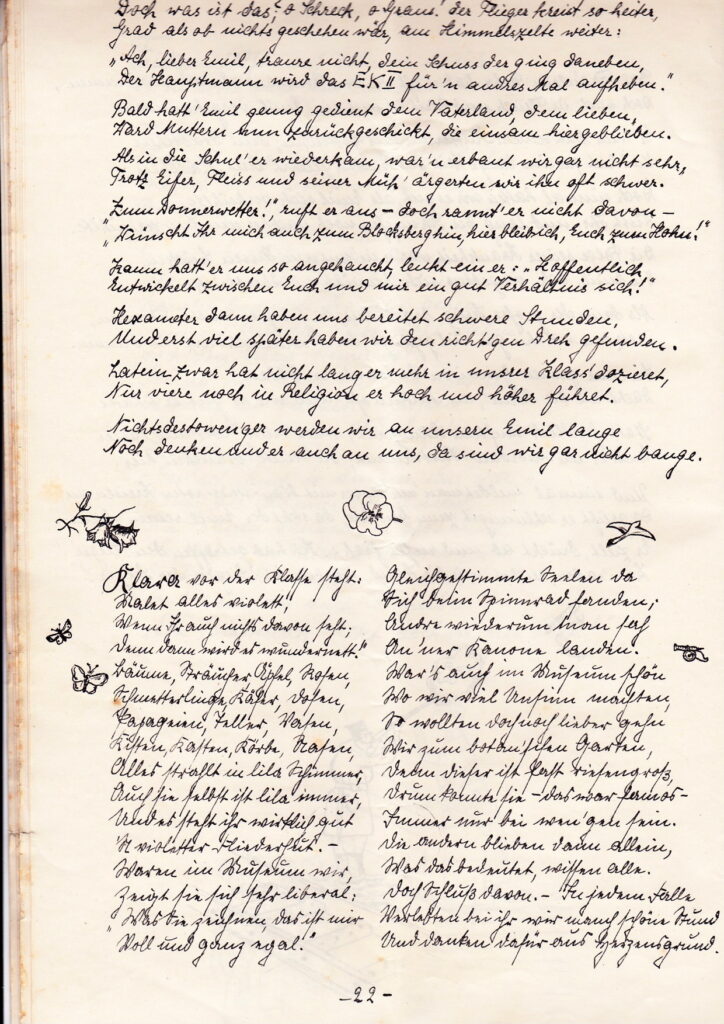 Doch was ist das, o Schreck, o Graus! der Flieger kreist so heiter,
Grad als ob nichts geschehen wär, am Himmelszelte weiter:
„Ach, lieber Emil, traure nicht, dein Schuss der ging daneben,
Der Hauptmann wird das EK II für'n andres Mal aufheben."
Bald hatt' Emil genug gedient dem Vaterland, dem lieben,
Ward Muttern nun zurückgeschickt, die einsam hiergeblieben.
Als in die Schul' er wiederkam, war'n erbaut wir gar nicht sehr,
Trotz Eifer, Fleiss und seiner Müh' ärgerten wir ihn oft schwer.
„Zum Donnerwetter!", ruft er aus – doch rannt' er nicht davon –
„Wünscht Ihr mich auch zum Blocksberg hin, hier bleib ich, Euch zum Hohn!"
Kaum hatt' er uns so angehaucht, lenkt ein er: „Hoffentlich
Entwickelt zwischen Euch und mir ein gut Verhältnis sich!"
Hexameter dann haben uns bereitet schwere Stunden,
Und erst viel später haben wir den richt'gen Dreh gefunden.
Latein zwar hat nicht langer mehr in unsrer Klass' dozieret,
Nur viere noch in Religion er hoch und höher führet.
Nichtsdestoweniger werden wir an unsern Emil lange
Noch denken und er auch an uns, da sind wir gar nicht bange.
Klara vor der Klasse steht:
Malet alles violett,
Wenn Ihr auch nichts davon seht,
Denn dann wird es wundernett!"
Bäume, Sträucher, Äpfel, Rosen,
Schmetterlinge, Käfer, Dosen,
Papageien, Teller, Vasen,
Kisten, Kasten, Körbe, Nasen,
Alles strahlt in lila Schimmer,
Auch sie selbst ist lila immer,
Und es steht ihr wirklich gut
'N violetter Fliederhut. –
Waren im Museum wir,
Zeigt sie sich sehr liberal:
„Was Sie zeichnen, das ist mir
Voll und ganz egal."
Gleichgestimmte Seelen da
Sich beim Spinnrad fanden;
Andre wiederum man sah
An'ner Kanone landen.
War's auch im Museum schön
Wo wir viel Unsinn machten,
So wollten doch noch lieber gehn
Wir zum botan'schen Garten,
Denn dieser ist fast riesengroß,
Drum konnte sie – das war famos –
Immer nur bei wen'gen sein.
Die andern blieben dann allein,
Was das bedeutet, wissen alle.
Doch Schluß davon. – In jedem Falle
Verlebten bei ihr wir manch schöne Stund
Und danken dafür aus Herzensgrund.
– 22 –